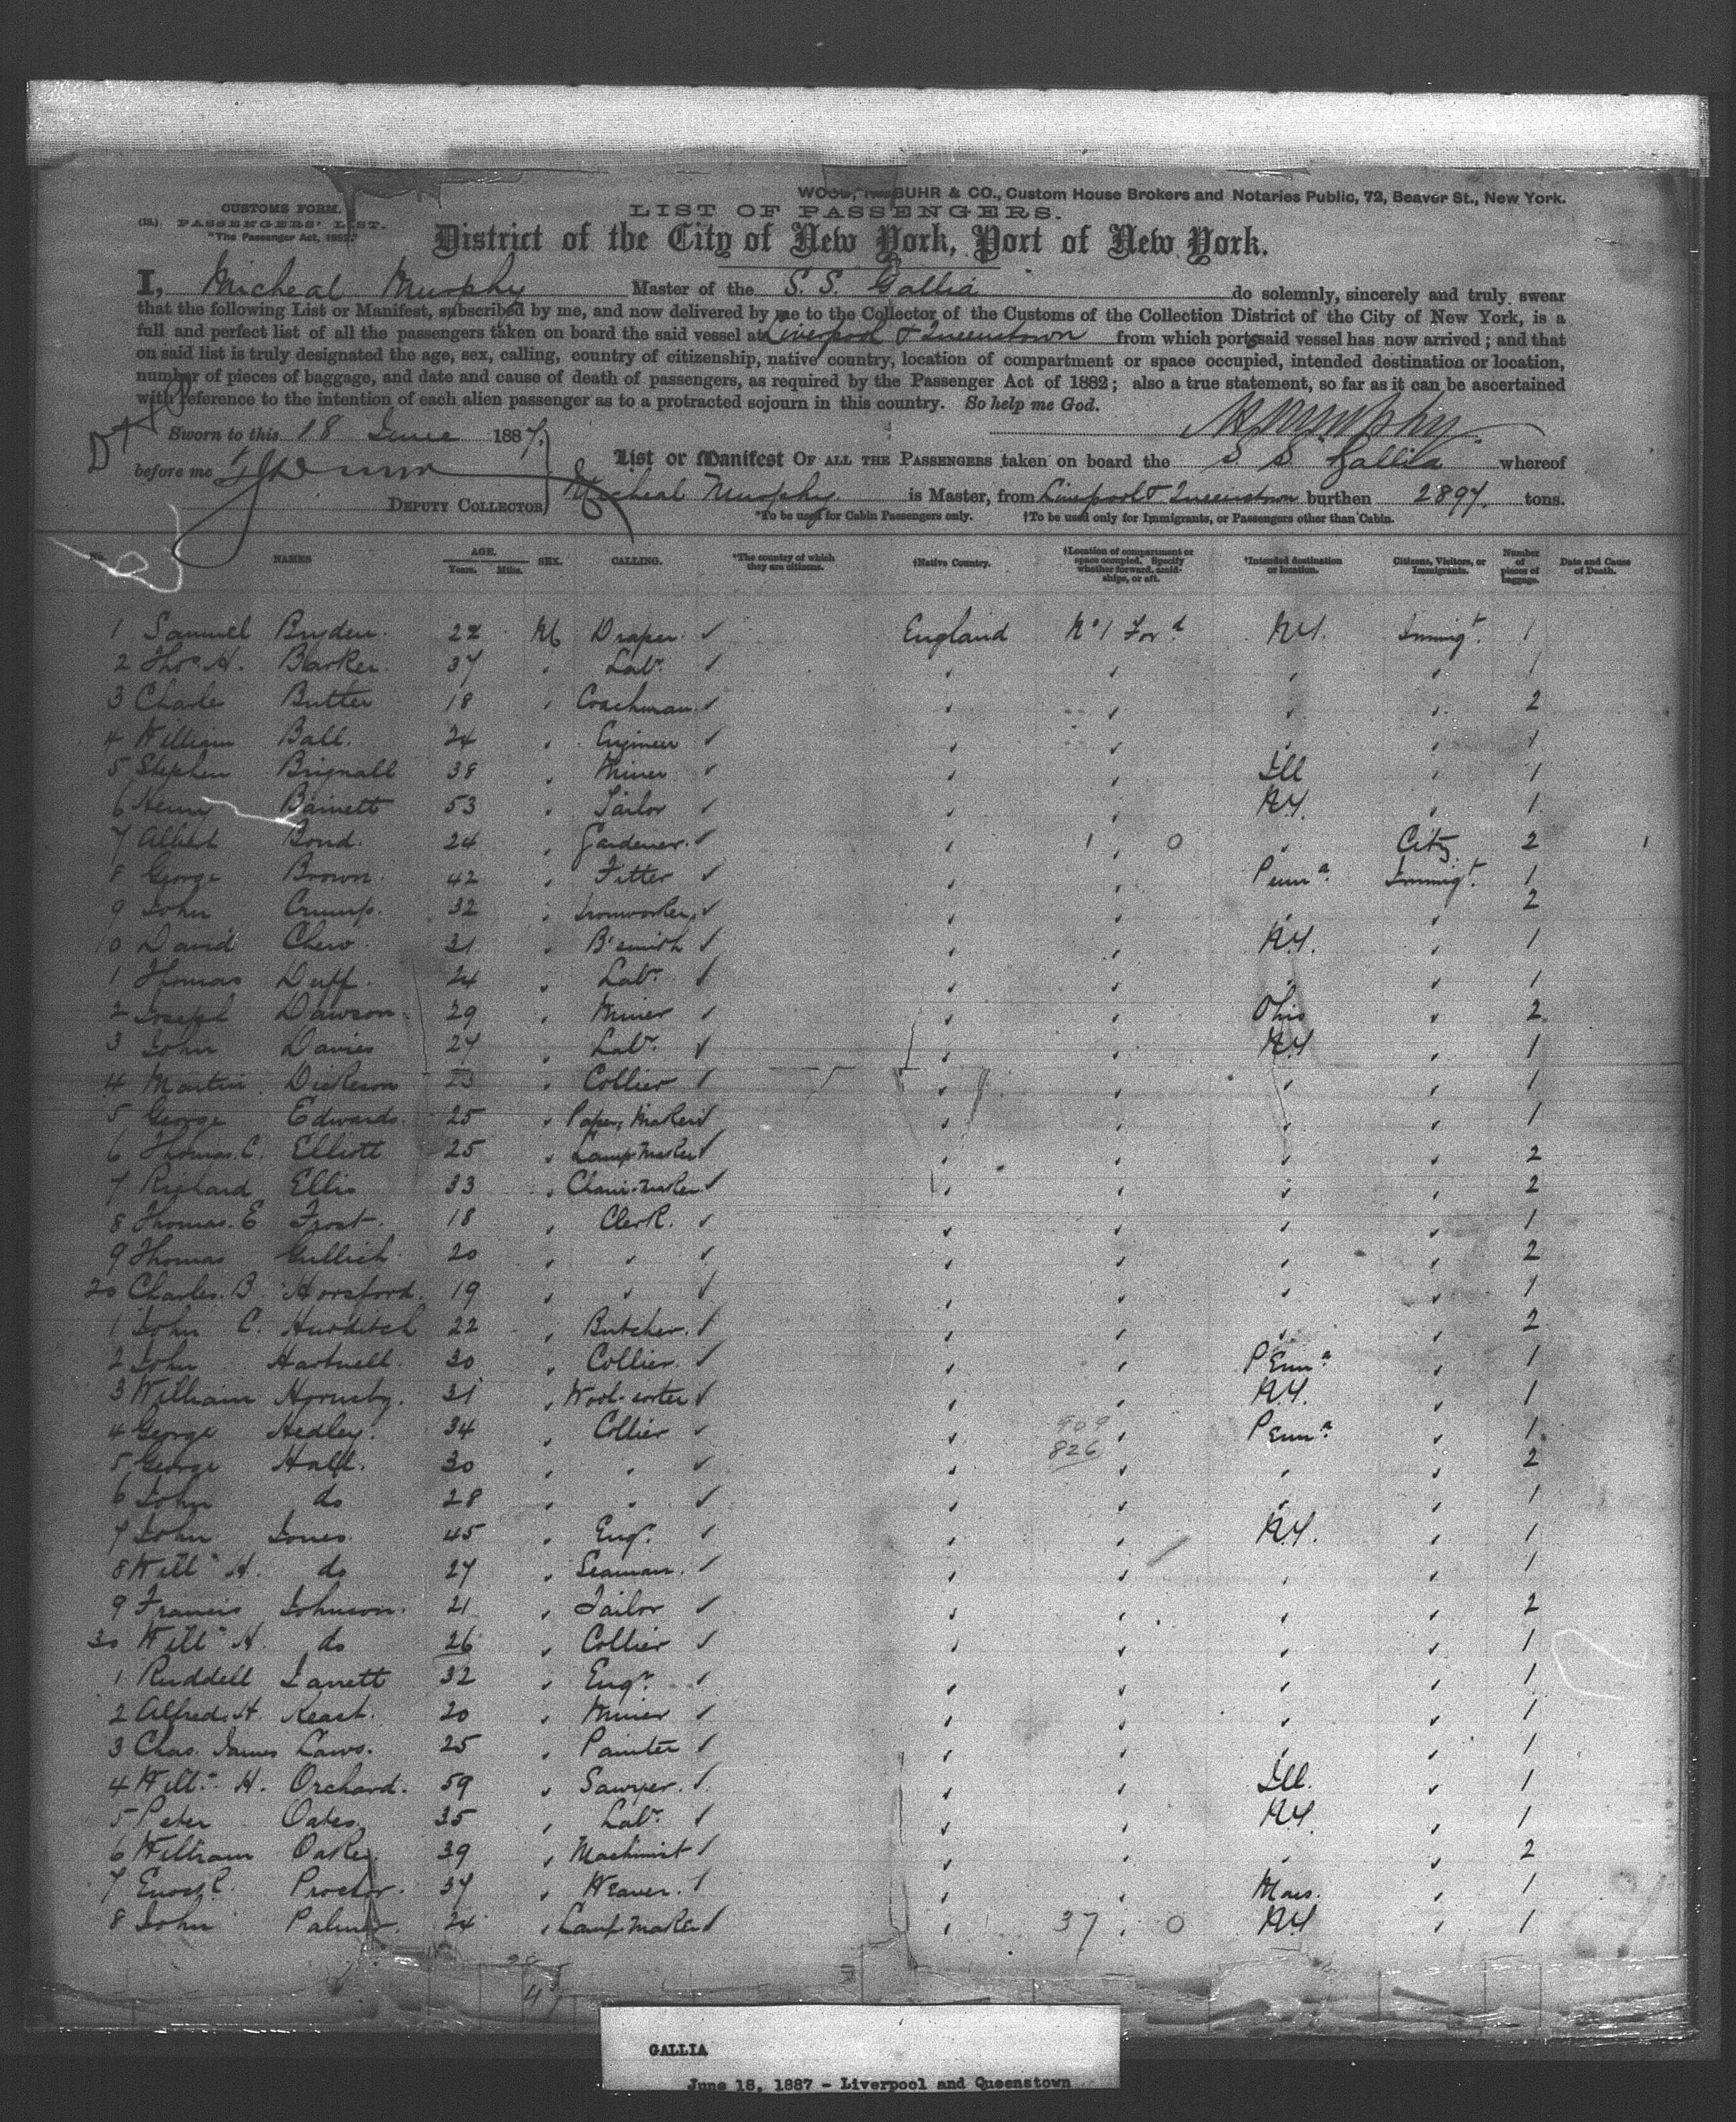 WOOD, BUHR & CO., Custom House Brokers and Notaries Public, 72, Beaver St., New York.
CUSTOMS FORM.
PASSENGERS' LIST.
"The Passenger Act, 1882."
LIST OF PASSENGERS.
District of the City of New York, Port of New York.
I, Micheal Murphy Master of the S. S. Gallia do solemnly, sincerely and truly swear
that the following List or Manifest, subscribed by me, and now delivered by me to the Collector of the Customs of the Collection District of the City of New York, is a
full and perfect list of all the passengers taken on board the said vessel at Liverpool & Queenstown from which ports said vessel has now arrived; and that
on said list is truly designated the age, sex, calling, country of citizenship, native country, location of compartment or space occupied, intended destination or location,
number of pieces of baggage, and date and cause of death of passengers, as required by the Passenger Act of 1882; also a true statement, so far as it can be ascertained
with reference to the intention of each alien passenger as to a protracted sojourn in this country. So help me God.
Sworn to this 18 June 1887. M Murphy
before me
List or Manifest OF ALL THE PASSENGERS taken on board the S. S. Gallia whereof
DEPUTY COLLECTOR Micheal Murphy is Master, from Liverpool & Queenstown burthen 2897. tons.
*To be used for Cabin Passengers only. †To be used only for Immigrants, or Passengers other than Cabin.
No. NAMES AGE. Years. Mths. SEX. CALLING. *The country of which they are citizens. †Native Country. †Location of compartment or space occupied. Specify whether forward, amidships, or aft. †Intended destination or location. Citizens, Visitors, or Immigrants. Number of pieces of baggage. Date and Cause of Death.
1 Samuel Bryden. 22 M Draper. ✓ England No 1 Ford N.Y. Immigt. 1
2 Thos. H. Barker. 37 " Labr. ✓ " " " " 1
3 Charle Butter 18 " Coachman. ✓ " " " " 2
4 William Ball. 24 " Engineer ✓ " " " " 1
5 Stephen Brignall 38 " Miner ✓ " " Ill " 1
6 Henry Barnett 53 " Tailor ✓ " " N.Y. " 1
7 Albert Bond. 24 " Gardener. ✓ " 1 " 0 " City 2
8 George Brown. 42 " Fitter ✓ " " Penna. Immigt. 1
9 John Crump. 32 " Ironworker, ✓ " " " " 2
10 David Chew 31 " B'smith ✓ " " N.Y. " 1
1 Thomas Duff. 24 " Labr. ✓ " " " " 1
2 Joseph Dawson. 29 " Miner ✓ " " Ohio " 2
3 John Davies 27 " Labr. ✓ " " N.Y " 1
4 Martin Dickeson 23 " Collier ✓ " " " " 1
5 George Edwards. 25 " Paper Maker ✓ " " " " 1
6 Thomas. C. Elliott 25 " Lamp Maker ✓ " " " " 2
7 Richard Ellis 33 " Chain-maker ✓ " " " " 2
8 Thomas. E Frost. 18 " Clerk. ✓ " " " " 1
9 Thomas Gullich 20 " " ✓ " " " " 2
20 Charles. B. Horsford. 19 " " ✓ " " " " 1
1 John C. Hurditch 22 " Butcher. ✓ " " " " 2
2 John Hartnell. 30 " Collier. ✓ " " Penna. " 1
3 William Hornsby. 31 " Wool-sorter ✓ " " N.Y. " 1
4 George Hedley. 34 " Collier ✓ " 909 " Penna. " 1
5 George Hall. 30 " " ✓ " 826 " " " 2
6 John do 28 " " ✓ " " " " 1
7 John Jones. 45 " Engr. ✓ " " N.Y. " 1
8 Willm H. do 27 " Seaman. ✓ " " " " 1
9 Francis Johnson. 21 " Tailor ✓ " " " " 2
30 Willm H. do 26 " Collier ✓ " " " " 1
1 Ruddell Jarrett 32 " Engr. ✓ " " " " 1
2 Alfred. H. Keast. 20 " Miner ✓ " " " " 1
3 Chas. James Laws. 25 " Painter ✓ " " " " 1
4 Willm. H. Orchard. 59 " Sawyer. ✓ " " Ill. " 1
5 Peter Oates 35 " Labr. ✓ " " N.Y " 1
6 William Oakey. 39 " Machinist ✓ " " " " 2
7 Enoch. Proctor. 37 " Weaver. ✓ " " Mass. " 1
8 John Palmer. 24 " Lamp Maker ✓ " 37 " 0 N.Y " 1
GALLIA
June 18, 1887 - Liverpool and Queenstown